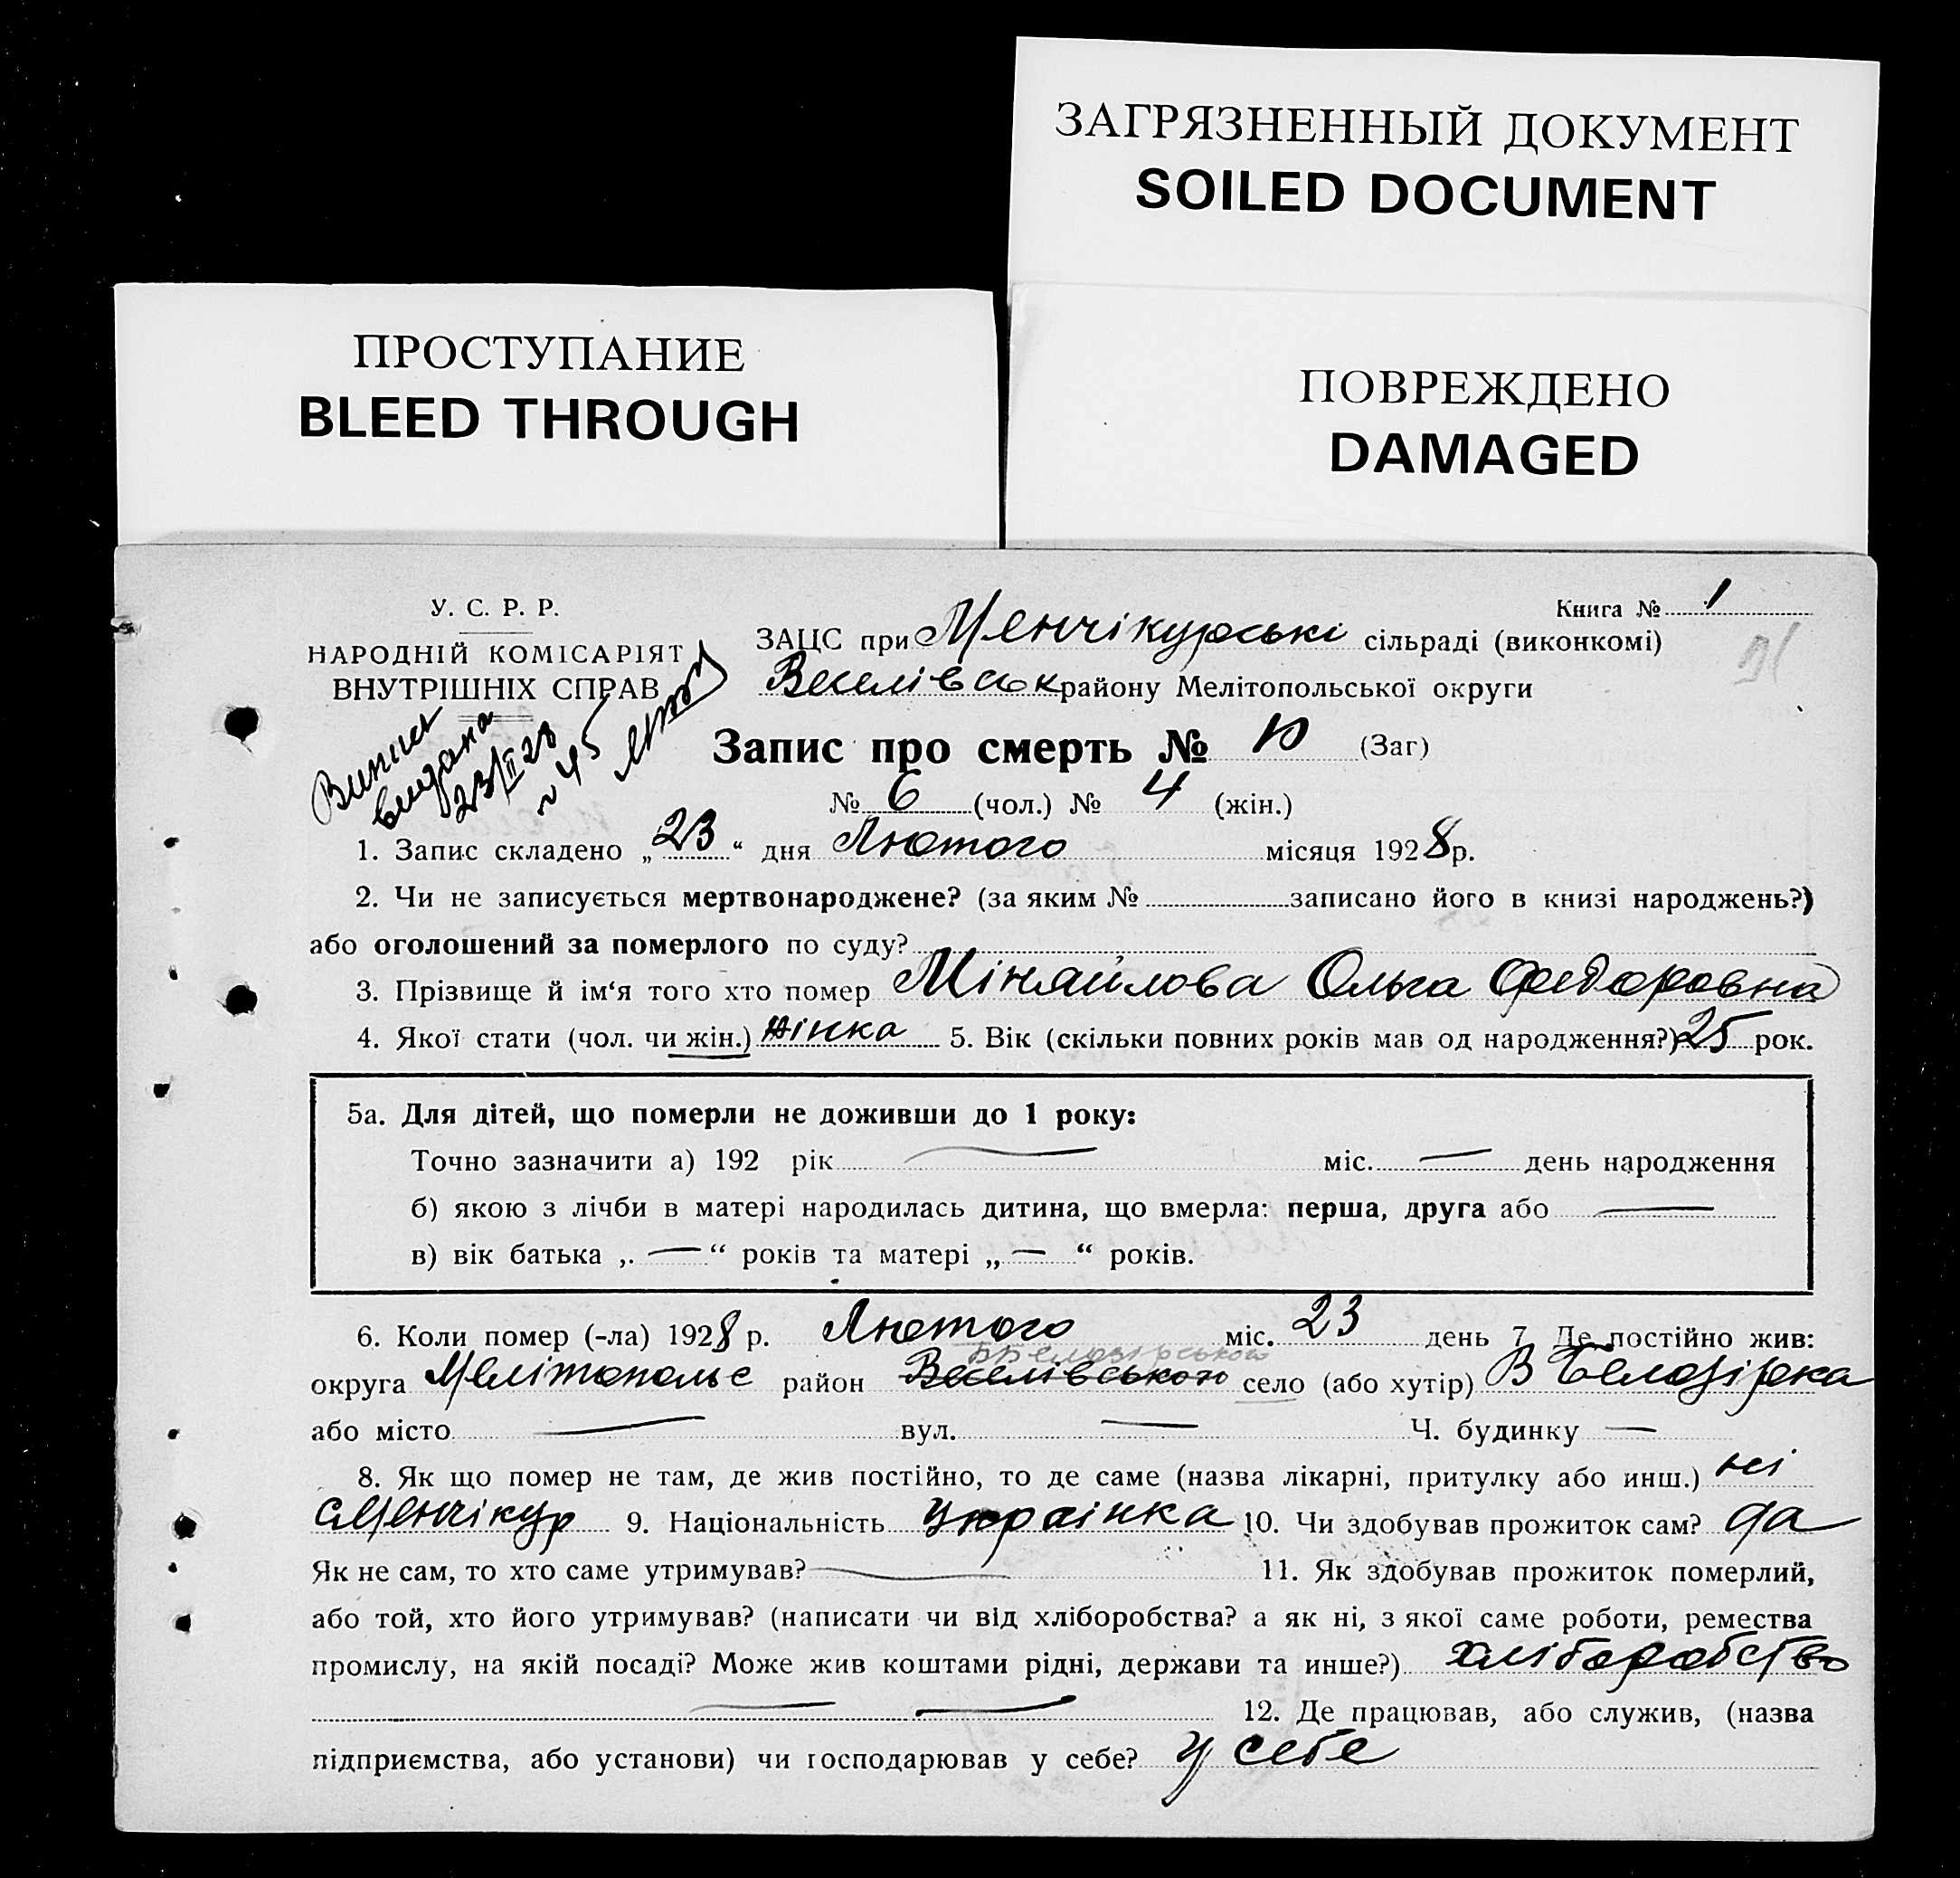 ЗАГРЯЗНЕННЫЙ ДОКУМЕНТ
SOILED DOCUMENT
ПРОСТУПАНИЕ
BLEED THROUGH
ПОВРЕЖДЕНО
DAMAGED
У. С. Р. Р.
НАРОДНІЙ КОМІСАРІЯТ
ВНУТРІШНІХ СПРАВ
Випис
видана
23/II 28
№ 45
Книга № 1
ЗАЦС при Менчікурські сільраді (виконкомі)
Веселівськ району Мелітопольської округи
91
Запис про смерть № 10 (Заг)
№ 6 (чол.) № 4 (жін.)
1. Запис складено „23“ дня Лютого місяця 1928 р.
2. Чи не записується мертвонароджене? (за яким № записано його в книзі народжень?)
або оголошений за померлого по суду?
3. Прізвище й ім‘я того хто помер Міняйлова Ольга Федоровна
4. Якої стати (чол. чи жін.) жінка 5. Вік (скільки повних років мав од народження?) 25 рок.
5а. Для дітей, що померли не доживши до 1 року:
Точно зазначити а) 192 рік — міс. — день народження
б) якою з лічби в матері народилась дитина, що вмерла: перша, друга або —
в) вік батька „ — “ років та матері „ — “ років.
6. Коли помер (-ла) 1928 р. Лютого міс. 23 день 7. Де постійно жив:
ББелозірського
округа Мелітопольс район Веселівського село (або хутір) В Белозірка
або місто — вул. — Ч. будинку —
8. Як що помер не там, де жив постійно, то де саме (назва лікарні, притулку або инш.) ні
с Менчікур 9. Національність Українка 10. Чи здобував прожиток сам? да
Як не сам, то хто саме утримував? — 11. Як здобував прожиток померлий,
або той, хто його утримував? (написати чи від хліборобства? а як ні, з якої саме роботи, ремества
промислу, на якій посаді? Може жив коштами рідні, держави та инше?) хліборобство
— — 12. Де працював, або служив, (назва
підприємства, або установи) чи господарював у себе? у себе